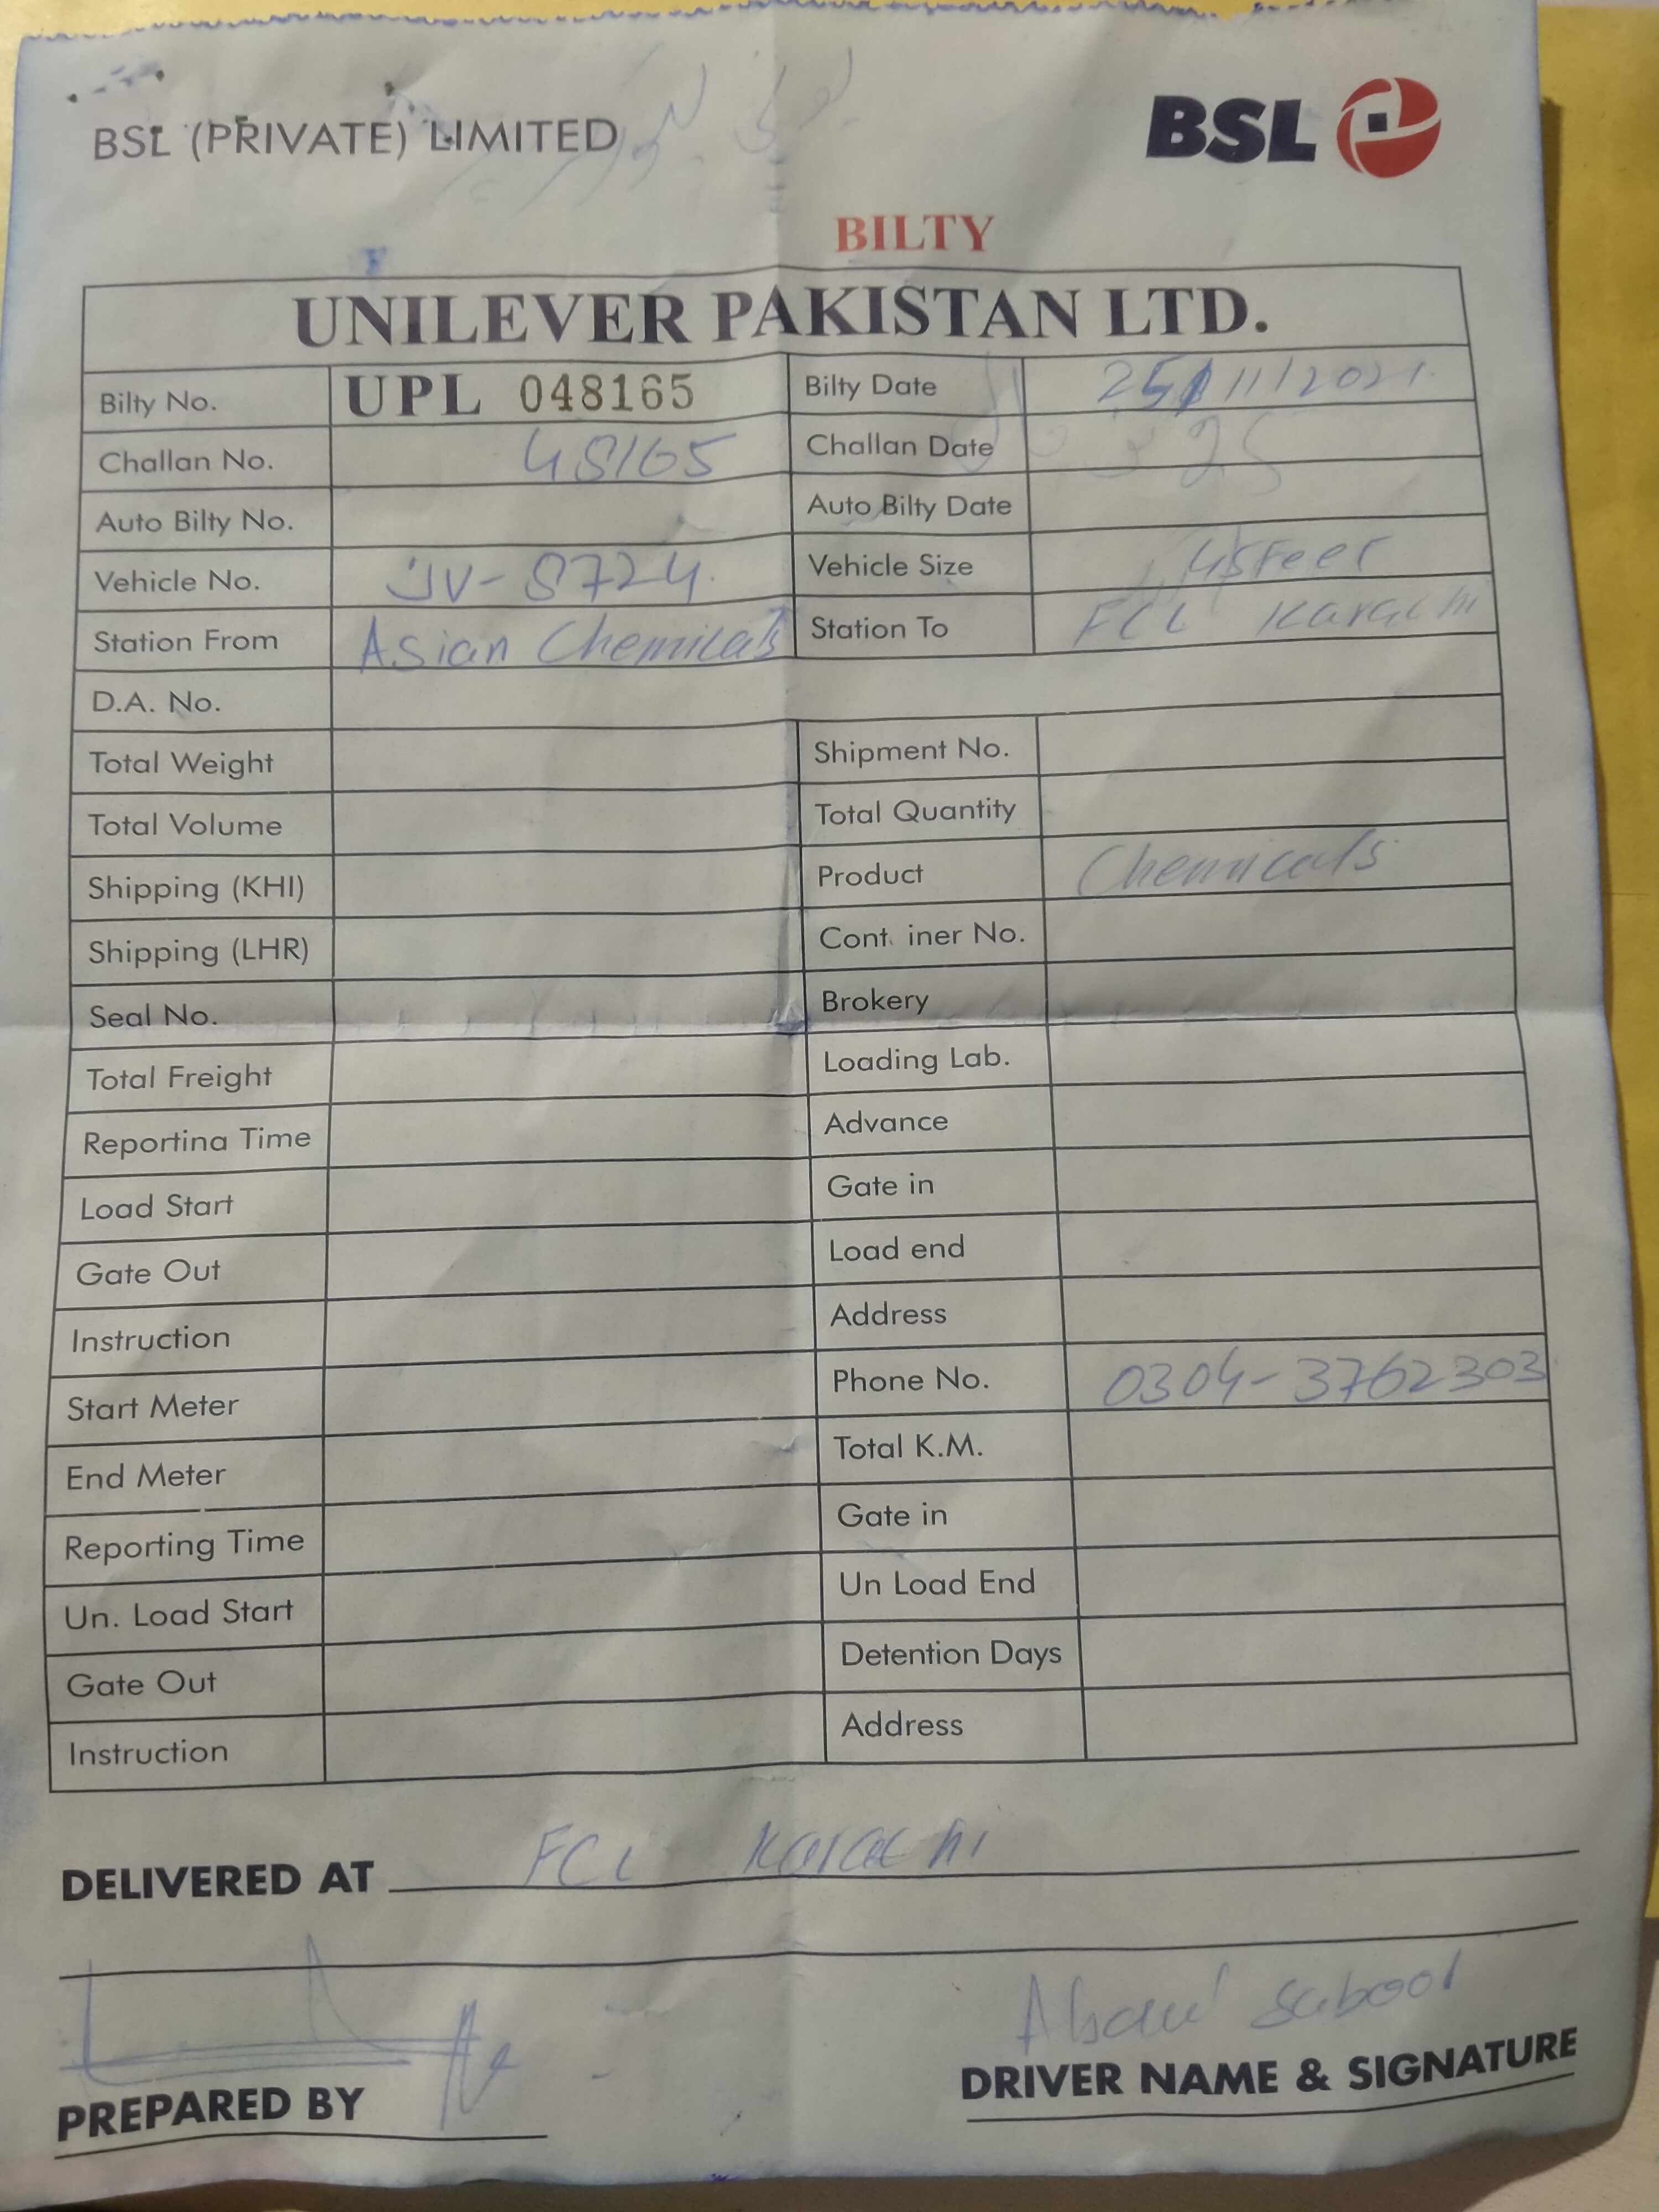 BSL (PRIVATE) LIMITED
BSL
BILTY
UNILEVER PAKISTAN LTD.
Bilty No. UPL 048165 Bilty Date 25/11/2021
Challan No. 48165 Challan Date
Auto Bilty No. Auto Bilty Date
Vehicle No. JV-8724 Vehicle Size 45Feet
Station From Asian Chemicals Station To FCL Karachi
D.A. No.
Total Weight Shipment No.
Total Volume Total Quantity
Shipping (KHI) Product Chemicals
Shipping (LHR) Cont iner No.
Seal No. Brokery
Total Freight Loading Lab.
Reportina Time Advance
Load Start Gate in
Gate Out Load end
Instruction Address
Start Meter Phone No. 0304-3762303
End Meter Total K.M.
Reporting Time Gate in
Un. Load Start Un Load End
Gate Out Detention Days
Instruction Address
DELIVERED AT FCL Karachi
Sabool
PREPARED BY DRIVER NAME & SIGNATURE